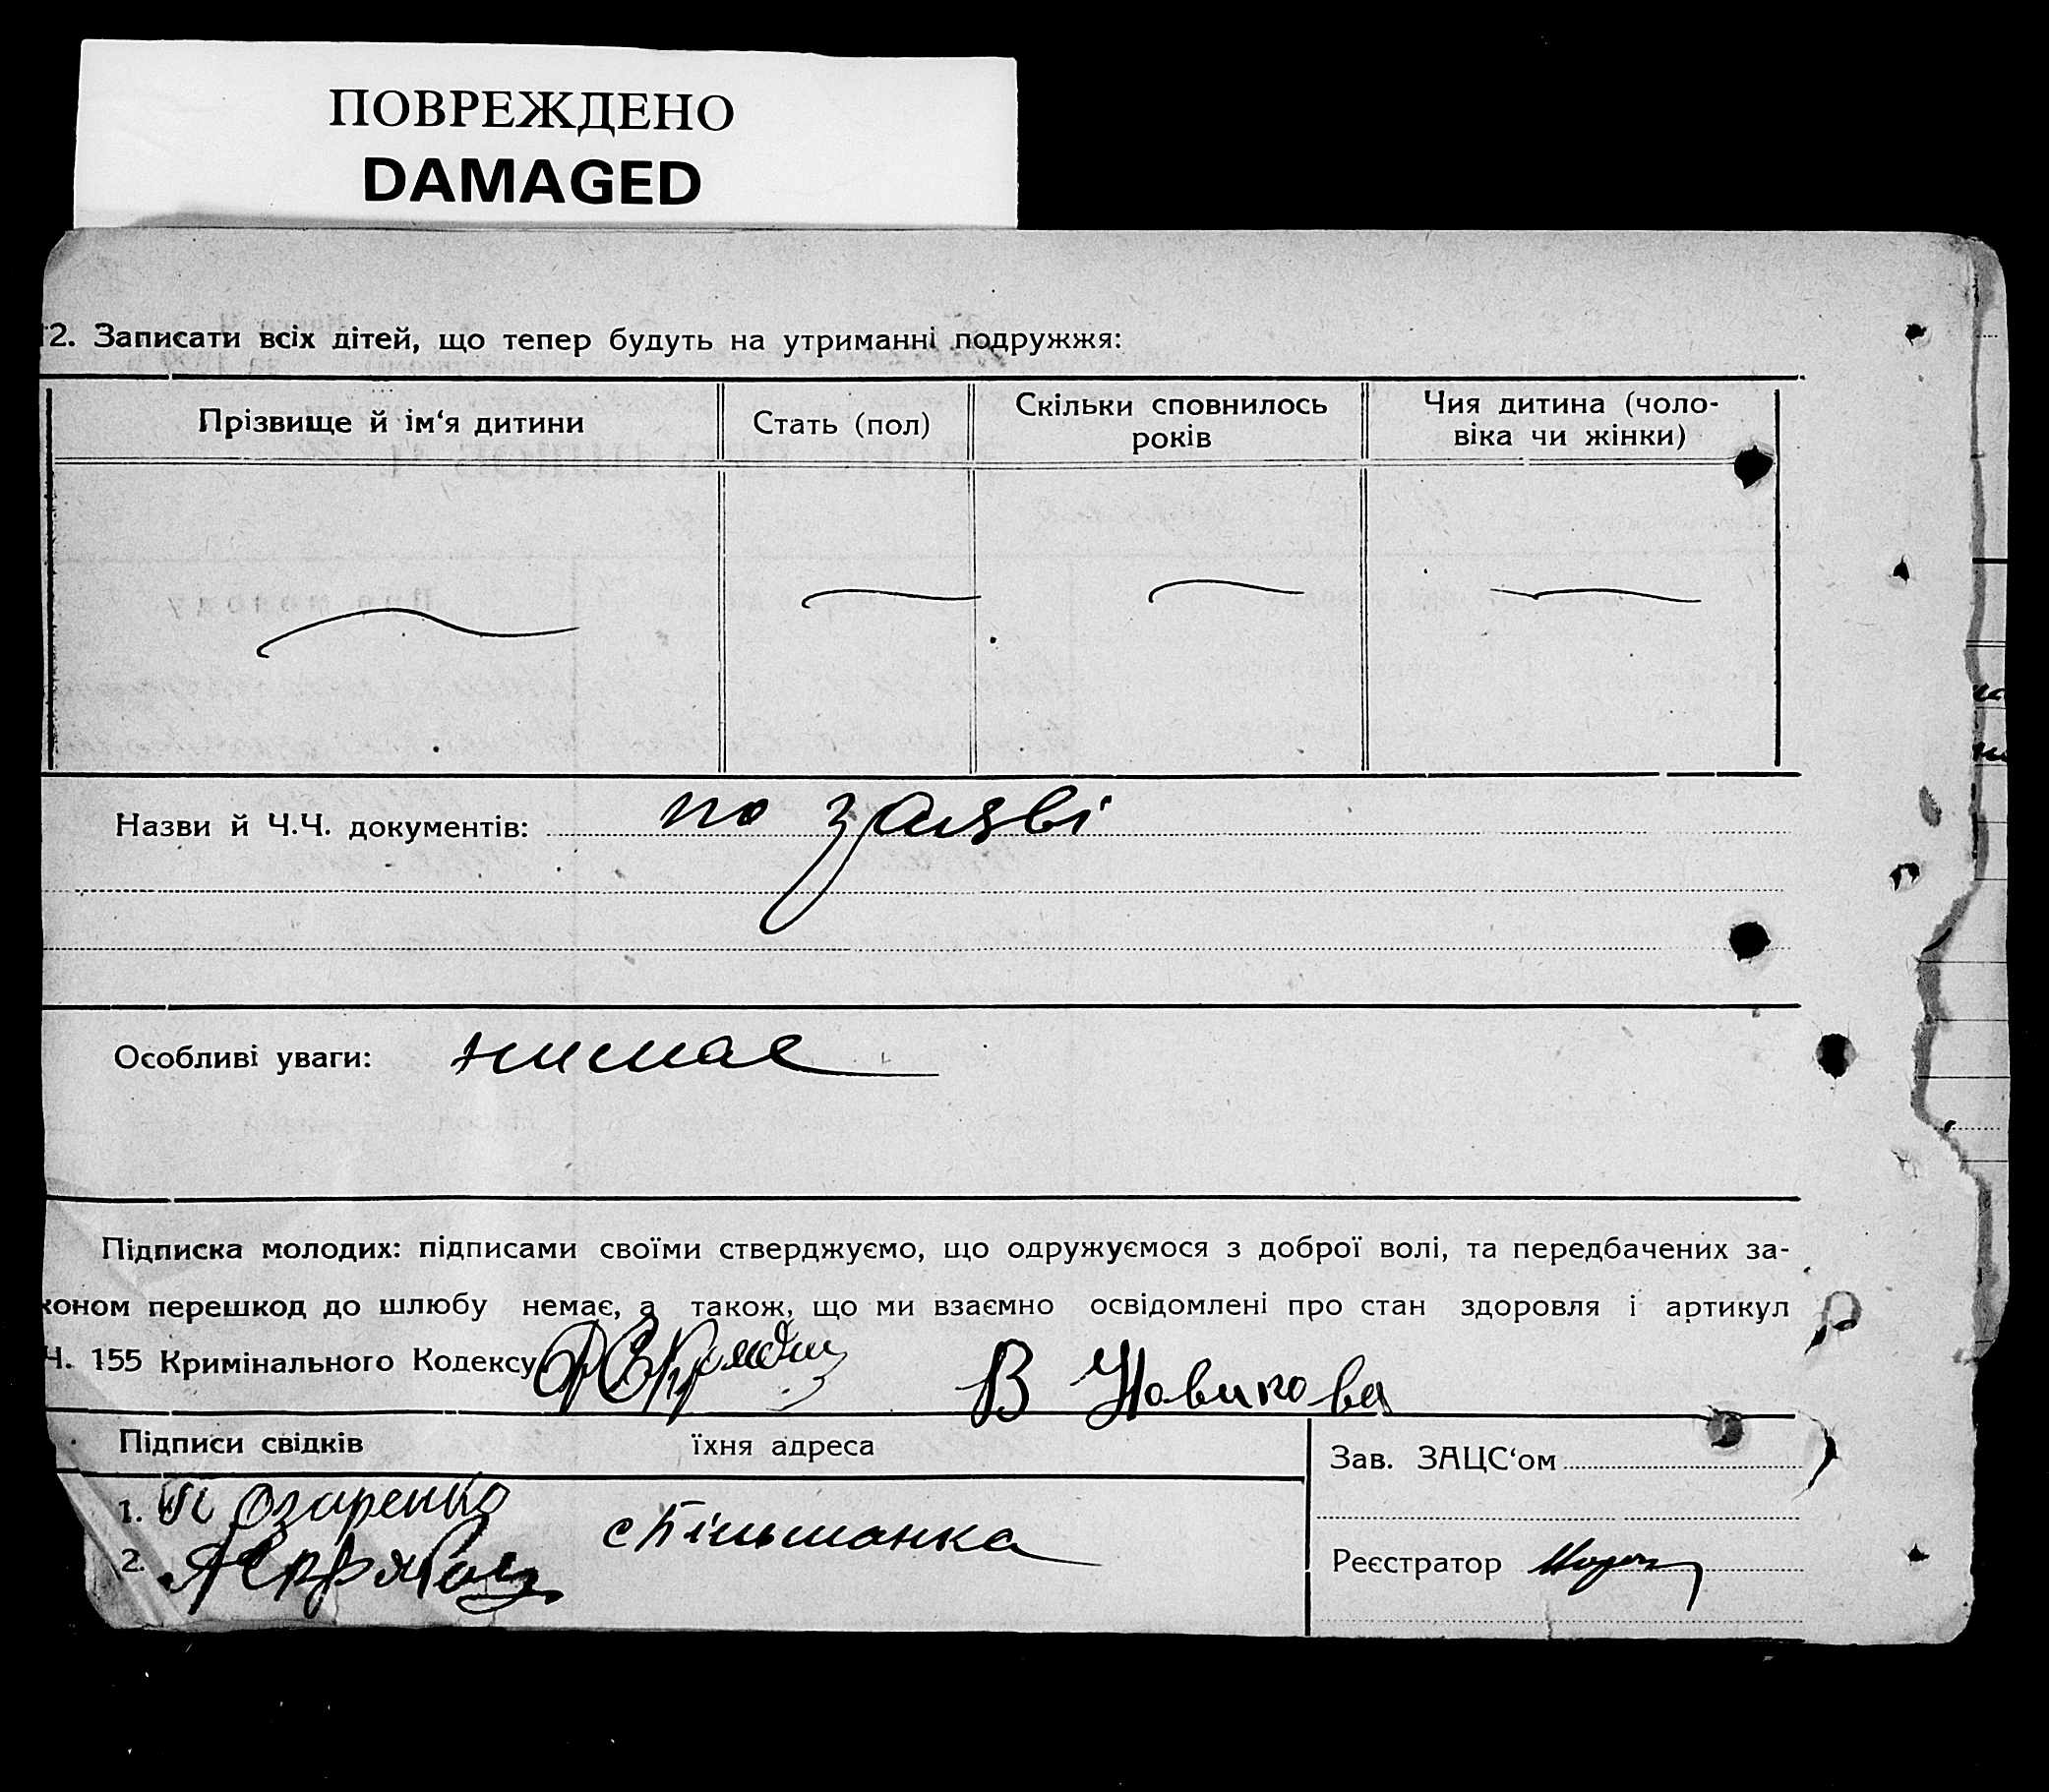 ПОВРЕЖДЕНО
DAMAGED
12. Записати всіх дітей, що тепер будуть на утриманні подружжя:
Прізвище й ім'я дитини
Стать (пол)
Скільки сповнилось
років
Чия дитина (чоло-
віка чи жінки)
Назви й Ч.Ч. документів: по заяві
Особливі уваги: нимає
Підписка молодих: підписами своїми стверджуємо, що одружуємося з доброї волі, та передбачених за-
коном перешкод до шлюбу немає, а також, що ми взаємно освідомлені про стан здоровля і артикул
Ч. 155 Кримінального Кодексу В Новикова
Підписи свідків їхня адреса
Зав. ЗАЦС'ом
1.
2.
Реєстратор